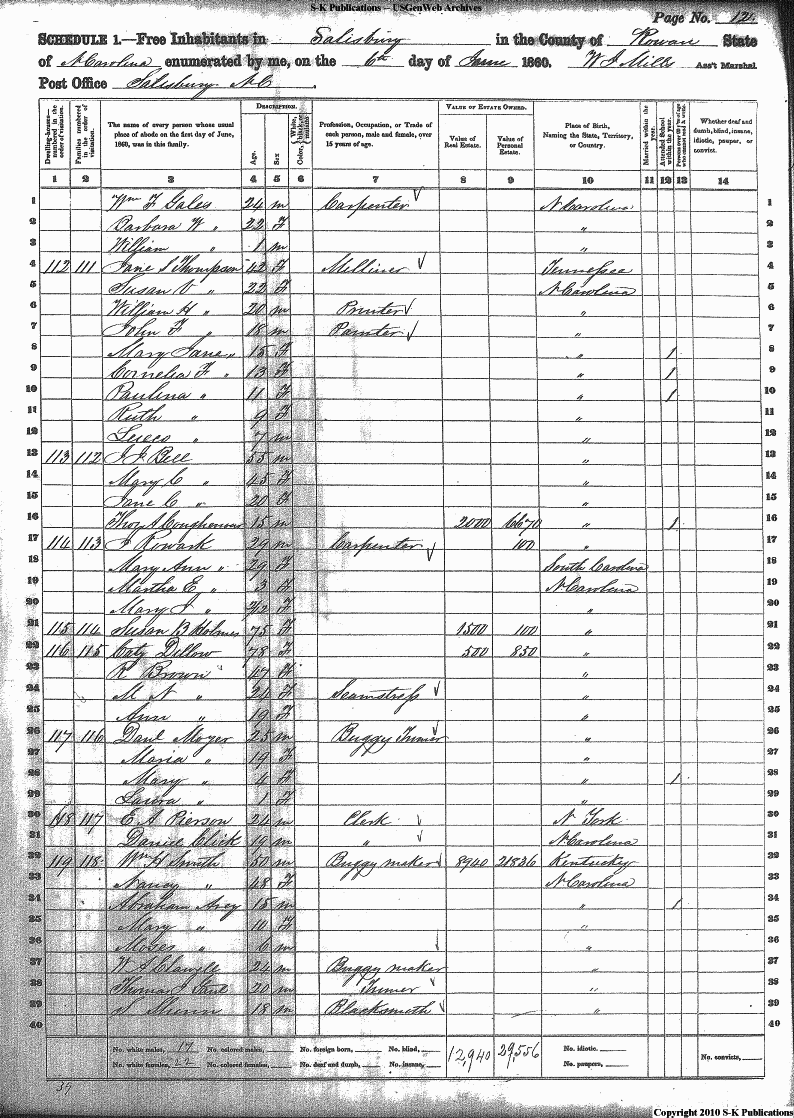 S-K Publications – USGenWeb Archives
Page No. 12
SCHEDULE 1.—Free Inhabitants in Salisbury in the County of Rowan State
of N Carolina enumerated by me, on the 6th day of June 1860. W J Mills Ass't Marshal
Post Office Salisbury N C.
Dwelling-houses numbered in the order of visitation. Families numbered in the order of visitation. The name of every person whose usual place of abode on the first day of June, 1860, was in this family. DESCRIPTION. Age. Sex Color, White, black, or mulatto Profession, Occupation, or Trade of each person, male and female, over 15 years of age. VALUE OF ESTATE OWNED. Value of Real Estate. Value of Personal Estate. Place of Birth, Naming the State, Territory, or Country. Married within the year. Attended School within the year. Whether deaf and dumb, blind, insane, idiotic, pauper, or convict.
1 2 3 4 5 6 7 8 9 10 11 12 13 14
1 Wm F Gales 24 m Carpenter N Carolina 1
2 Barbara W " 22 F " 2
3 William " 1 m " 3
4 112 111 Jane S Thompson 42 F Milliner Tennessee 4
5 Susan V " 22 F N Carolina 5
6 William H " 20 m Printer " 6
7 John F " 18 m Painter " 7
8 Mary Jane " 15 F " 1 8
9 Cornelia F " 13 F " 1 9
10 Paulina " 11 F " 1 10
11 Ruth " 9 F " 11
12 " 7 m " 12
13 113 112 Bell 55 m " 13
14 Mary C " 45 F " 14
15 Jane C " 20 F " 15
16 Thos A Coughenour 15 m 2000 6670 " 1 16
17 114 113 J Rowark 29 m Carpenter 100 " 17
18 Mary Ann " 29 F South Carolina 18
19 Martha E " 3 F N Carolina 19
20 Mary J " 2/12 F " 20
21 115 114 Susan B Holmes 75 F 1500 100 " 21
22 116 115 Caty Dillow 78 F 500 850 " 22
23 R Brown 47 F " 23
24 M N " 24 F Seamstress " 24
25 Ann " 19 F " 25
26 117 116 Danl Moyer 25 m Buggy Trimer " 26
27 Maria " 19 F " 27
28 Mary " 4 F " 1 28
29 Laura " 1 F " 29
30 118 117 E A Pierson 24 m Clerk N York 30
31 Daniel Click 19 m " N Carolina 31
32 119 118 Wm H Smith 50 m Buggy maker 8940 21836 Kentucky 32
33 Nancy " 48 F N Carolina 33
34 Abraham Arey 15 m " 1 34
35 Mary " 10 F " 35
36 Moses " 6 m " 36
37 W A 24 m Buggy maker " 37
38 Thomas J 20 m Trimer " 38
39 S 18 m Blacksmith " 39
40 40
No. white males, 17 No. colored males, No. foreign born, No. blind, 12,940 29,556 No. idiotic,
No. white females, 22 No. colored females, No. deaf and dumb, No. insane, No. paupers, No. convicts,
39
Copyright 2010 S-K Publications